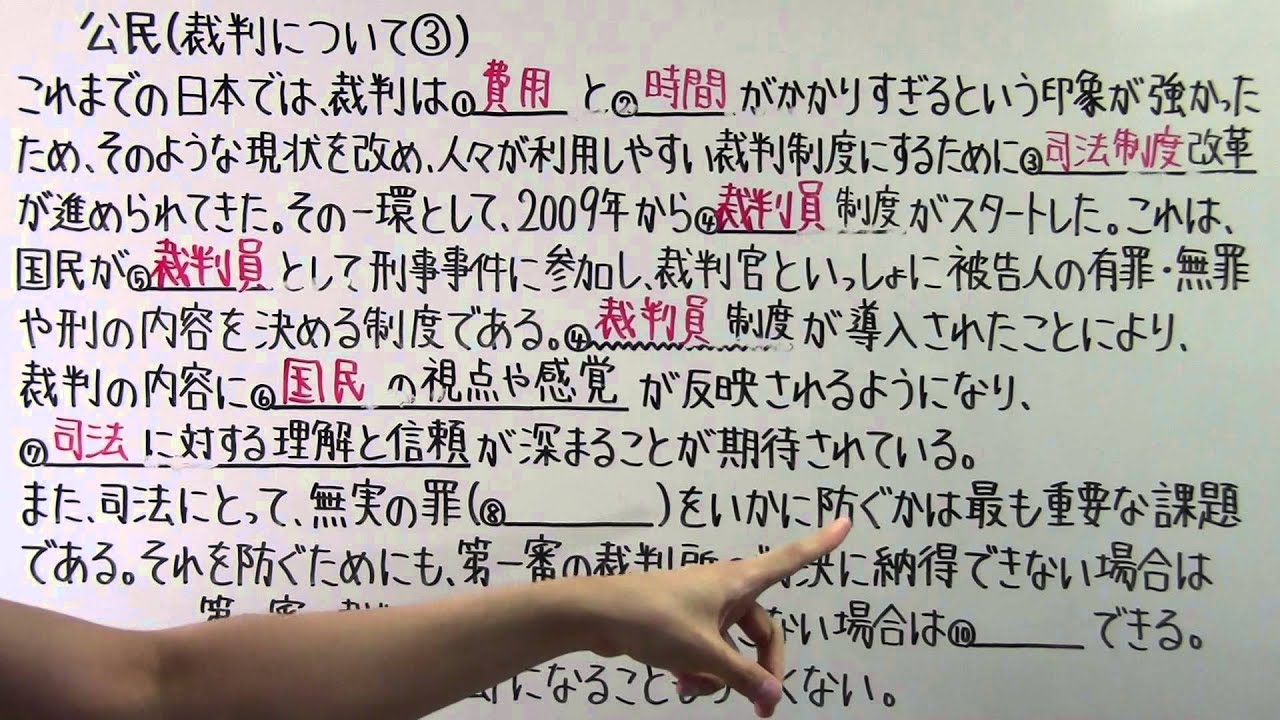 公民(裁判について③)
これまでの日本では、裁判は①費用と②時間がかかりすぎるという印象が強かった
ため、そのような現状を改め、人々が利用しやすい裁判制度にするために③司法制度改革
が進められてきた。その一環として、2009年から④裁判員制度がスタートした。これは、
国民が⑤裁判員として刑事事件に参加し、裁判官といっしょに被告人の有罪・無罪
や刑の内容を決める制度である。④裁判員制度が導入されたことにより、
裁判の内容に⑥国民の視点や感覚が反映されるようになり、
⑦司法に対する理解と信頼が深まることが期待されている。
また、司法にとって、無実の罪(⑧　　　)をいかに防ぐかは最も重要な課題
である。それを防ぐためにも、第一審の裁判所 決に納得できない場合は
ない場合は⑩　　　できる。
になることも くない。